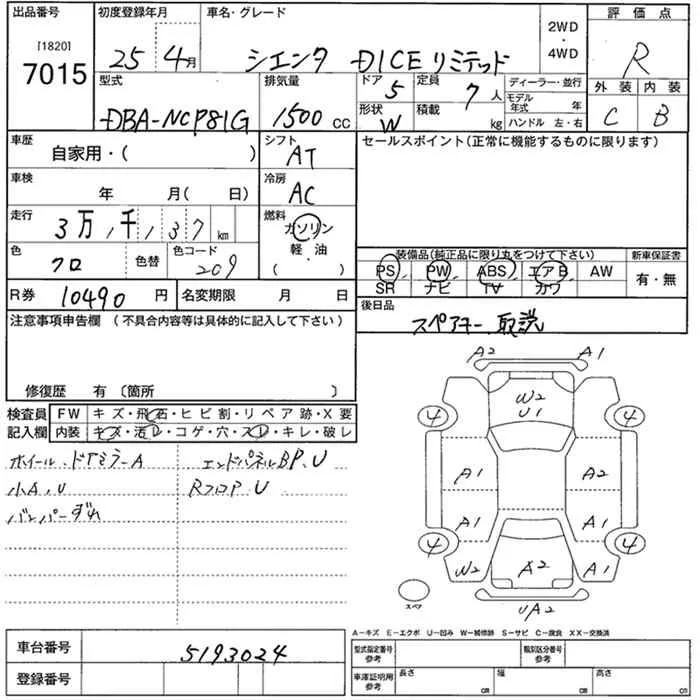 出品番号 初度登録年月 車名・グレード 評価点
[1820] 7015 25 4月 シエンタ DICEリミテッド 2WD・4WD R
型式 排気量 ドア 定員 ディーラー・並行 外装 内装
DBA-NCP81G 1500 cc 5 7人 モデル年式 年 C B
形状 W 積載 kg ハンドル 左・右
車歴 シフト セールスポイント(正常に機能するものに限ります)
自家用・( ) AT
車検 冷房
年 月( 日) AC
走行 燃料
3万,千,37 km ガソリン
軽・油
( )
色 色替 色コード
クロ 209
装備品(純正品に限り丸をつけて下さい) 新車保証書
PS PW ABS エアB AW 有・無
SR ナビ TV カワ
R券 10490円 名変期限 月 日
後日品
スペアキー 取説
注意事項申告欄 (不具合内容等は具体的に記入して下さい)
修復歴 有 〔箇所 〕
検査員記入欄 FW キズ・飛石・ヒビ割・リペア跡・X要
内装 キズ・汚レ・コゲ・穴・スレ・キレ・破レ
ホイール、ドアミラーA エンドパネルBP、U
小A,U RフロP、U
バンパーずれ
A2 A1
W2
U1
4 4
A1 A2
A1 A1
4 4
W2 A2 A1
スペア UA2
A-キズ E-エクボ U-凹み W-補修跡 S-サビ C-腐食 XX-交換済
車台番号 5193024
登録番号
型式指定番号 参考 類別区分番号 参考
車庫証明用 参考 長さ cm 幅 cm 高さ cm